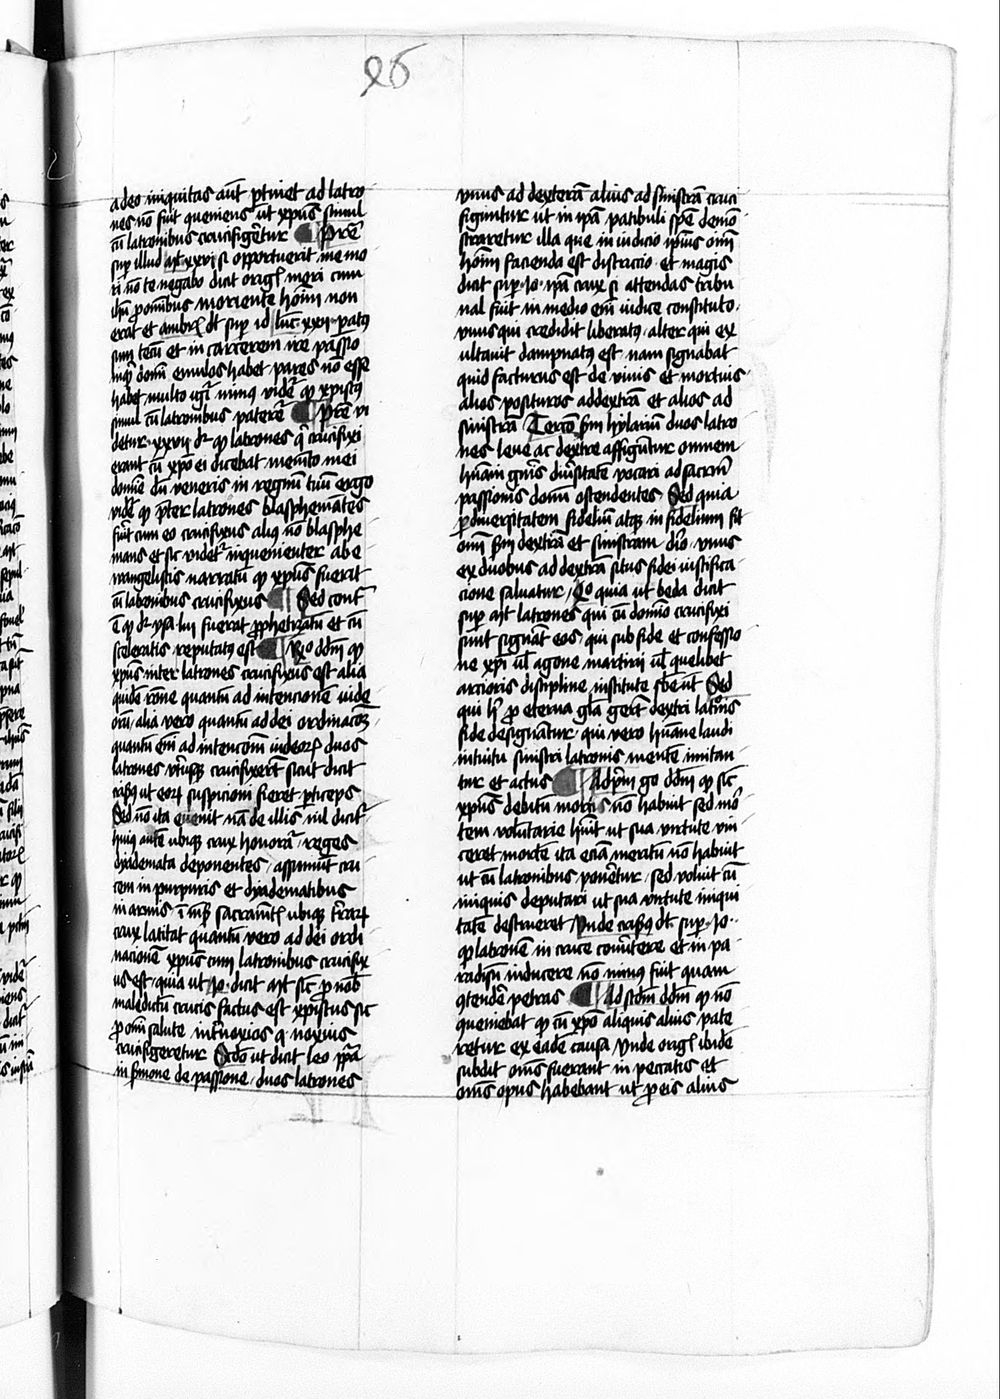 26
adeo iniquitas aūt ꝑtinet ad latro
nes nō fuit ꝯueniens ut xp̄us simul
cū latronibus crucifigeretur ¶ Pret̄
sup̲ illud mt̄ xxvi si opportuerit me mo
ri nō te negabo dicit oriḡ mori cum
ih̄u ꝓ omnibus moriente hoīm non
erat et ambr̄ dt̄ sup̲ id luc̄ xxii paratꝰ
sum tecū et in carcerem ire passio
inq̄t domī emulos habet pares nō
habet multo igit̄ minꝰ videt̄ qp xpistꝰ
simul cū latronibus pateret̄ ¶ Pret̄
detur xxvii dr̄ qp latrones q̄ crucifixi
erant cū xp̄o ei dicebat memēto mei
domine dū veneris in regnū tuū ergo
videt̄ qp p̄ter latrones blasphemātes
fuit cum eo crucifixus aliꝰ nō blasphe
mans et sic videt̄ inꝯuenienter ab e
wangelistis narratū qp xp̄us fuerit
cū latronibus crucifixus ¶ Sed cont̄
ē qp dr̄ ysa liii fuerat ꝓphetatū et cū
sceleratis reputatꝰ est ¶ Rn̄o dd̄m qp
xp̄us inter latrones crucifixus est alia
quidē rōne quantū ad intencionē iude
orū alia vero quantū ad dei ordinacōē
quantū em̄ ad intencōem iudeoꝝ duos
latrones vtrīsqꝫ crucifixerūt sicut dicit
crisꝰ ut eoꝝ suspicioni fieret ꝑticeps
Sed nō ita euenit nā de illis nil dicit̄
huiꝰ autē ubiqꝫ crux honorat̄ reges
dyademata deponentes assumūt cru
cem in purpuris et dyadematibus
in armis ī mēsa sacramēt̄ ubiqꝫ terraꝝ
crux latitat quantū vero ad dei ordi
nacionē xp̄us cum latronibus crucifix
us est quia ut Jo dicit mt̄ sic̄ ꝓ nob̄
maledictū crucis factus est xpistus sic
ꝓ omī salute inter noxios q̄ noxius
crucifigeretur Scd̄o ut dicit leo papa
in s̄mone de passione duos latrones
vnus ad dexterā alius ad sinistrā cruci
figuntur ut in ip̄a patibuli spē demō
straretur illa que in iudicio ip̄ius om̄i
hoīm facienda est discrecio et magis
dicit sup̲ Jo ip̄a crux si attendas tribu
nal fuit in medio em̄ iudice constituto
vnus qui credidit liberatꝰ alter qui ex
ultauit dampnatꝰ est nam signabat
quid facturus est de viuis et mortuis
alios posituros ad dextrā et alios ad
sinistrā Tercō s̄m hylariū duos latro
nes leue ac dextre affiguntur omnem
hūani gn̄is diuīsitatē vocari ad sacrm̄
passionis domī ostendentes Sed quia
ꝑ diuersitatem fideliū atqꝫ infidelium fit
oim̄ s̄m dextrā et sinistram diō vnus
ex duobus ad dextrā situs fidei iustifica
cione saluatur Qo quia ut beda dicit
sup̲ mt̄ latrones qui cū domīo crucifixi
sunt signāt eos qui sub fide et confessio
ne xp̄i ul̄ agone martirii ul̄ quelibet
arcioris discipline institute sbeūt Sed
qui h̄ ꝓ eterna gla gerūt dextri latrōis
fide designātur qui vero hūane laudi
intuitu sinistri latronis mentē imitan
tur et actus ¶ Ad p̄m ḡo dd̄m qp sic̄
xp̄us debitū mortis nō habuit sed mor̄
tem volūtarie sbiit ut sua virtute vin
ceret mortē ita eciā meritū nō habuit
ut cū latronibus poneretur sed voluit cū
iniquis deputari ut sua virtute iniqui
tatē destrueret Vnde crisꝰ dt̄ sup̲ Jo
qp latronē in cruce conūtere et in pa
radisū inducere nō minꝰ fuit quam
ꝯcutere petras ¶ Ad scdm̄ dd̄m qp nō
ꝯueniebat qp cū xp̄o aliquis alius pate
retur ex eadē causa Vnde oriḡ ibidē
subdit om̄s fuerant in peccatis et
om̄s opus habebant ut ꝓ eis alius